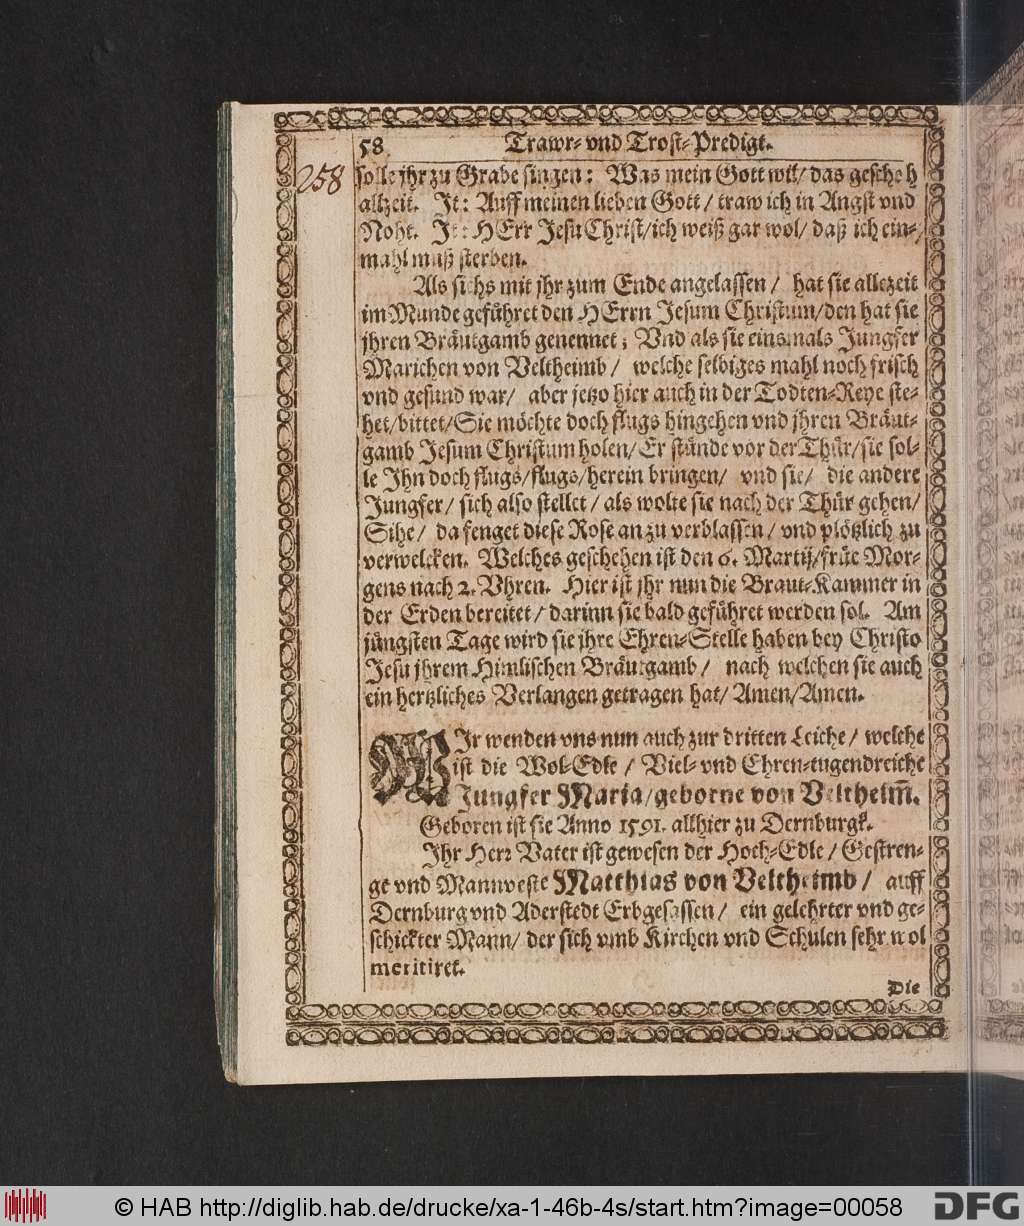 58 Trawr- vnd Trost-Predigt.
258
solle jhr zu Grabe singen: Was mein Gott wil/ das gescheh
allzeit. It: Auff meinen lieben Gott / traw ich in Angst vnd
Noht. It: HErr Jesu Christ/ ich weiß gar wol/ daß ich ein-
mahl muß sterben.
Als sichs mit jhr zum Ende angelassen / hat sie allezeit
im Munde geführet den HErrn Jesum Christum/ den hat sie
jhren Bräutgamb genennet; Vnd als sie einsmals Jungfer
Marichen von Veltheimb / welche selbiges mahl noch frisch
vnd gesund war/ aber jetzo hier auch in der Todten-Reye ste-
het/ bittet/ Sie möchte doch flugs hingehen vnd jhren Bräut-
gamb Jesum Christum holen/ Er stünde vor der Thür/ sie sol-
le Ihn doch flugs/ flugs/ herein bringen/ vnd sie/ die andere
Jungfer/ sich also stellet/ als wolte sie nach der Thür gehen/
Sihe/ da fenget diese Rose an zu verblassen/ vnd plötzlich zu
verwelcken. Welches geschehen ist den 6. Martij/ früe Mor-
gens nach 2. Vhren. Hier ist jhr nun die Braut-Kammer in
der Erden bereitet/ darinn sie bald geführet werden sol. Am
jüngsten Tage wird sie jhre Ehren-Stelle haben bey Christo
Jesu jhrem Himlischen Bräutgamb/ nach welchen sie auch
ein hertzliches Verlangen getragen hat/ Amen/ Amen.
WIr wenden vns nun auch zur dritten Leiche/ welche
ist die Wol-Edle / Viel- vnd Ehren-tugendreiche
Jungfer Maria/ geborne von Veltheim̃.
Geboren ist sie Anno 1591. allhier zu Dernburgk.
Ihr Herr Vater ist gewesen der Hoch-Edle / Gestren-
ge vnd Mannveste Matthias von Veltheimb / auff
Dernburg vnd Aderstedt Erbgesassen/ ein gelehrter vnd ge-
schickter Mann/ der sich vmb Kirchen vnd Schulen sehr wol
meritiret.
Die
© HAB http://diglib.hab.de/drucke/xa-1-46b-4s/start.htm?image=00058
DFG